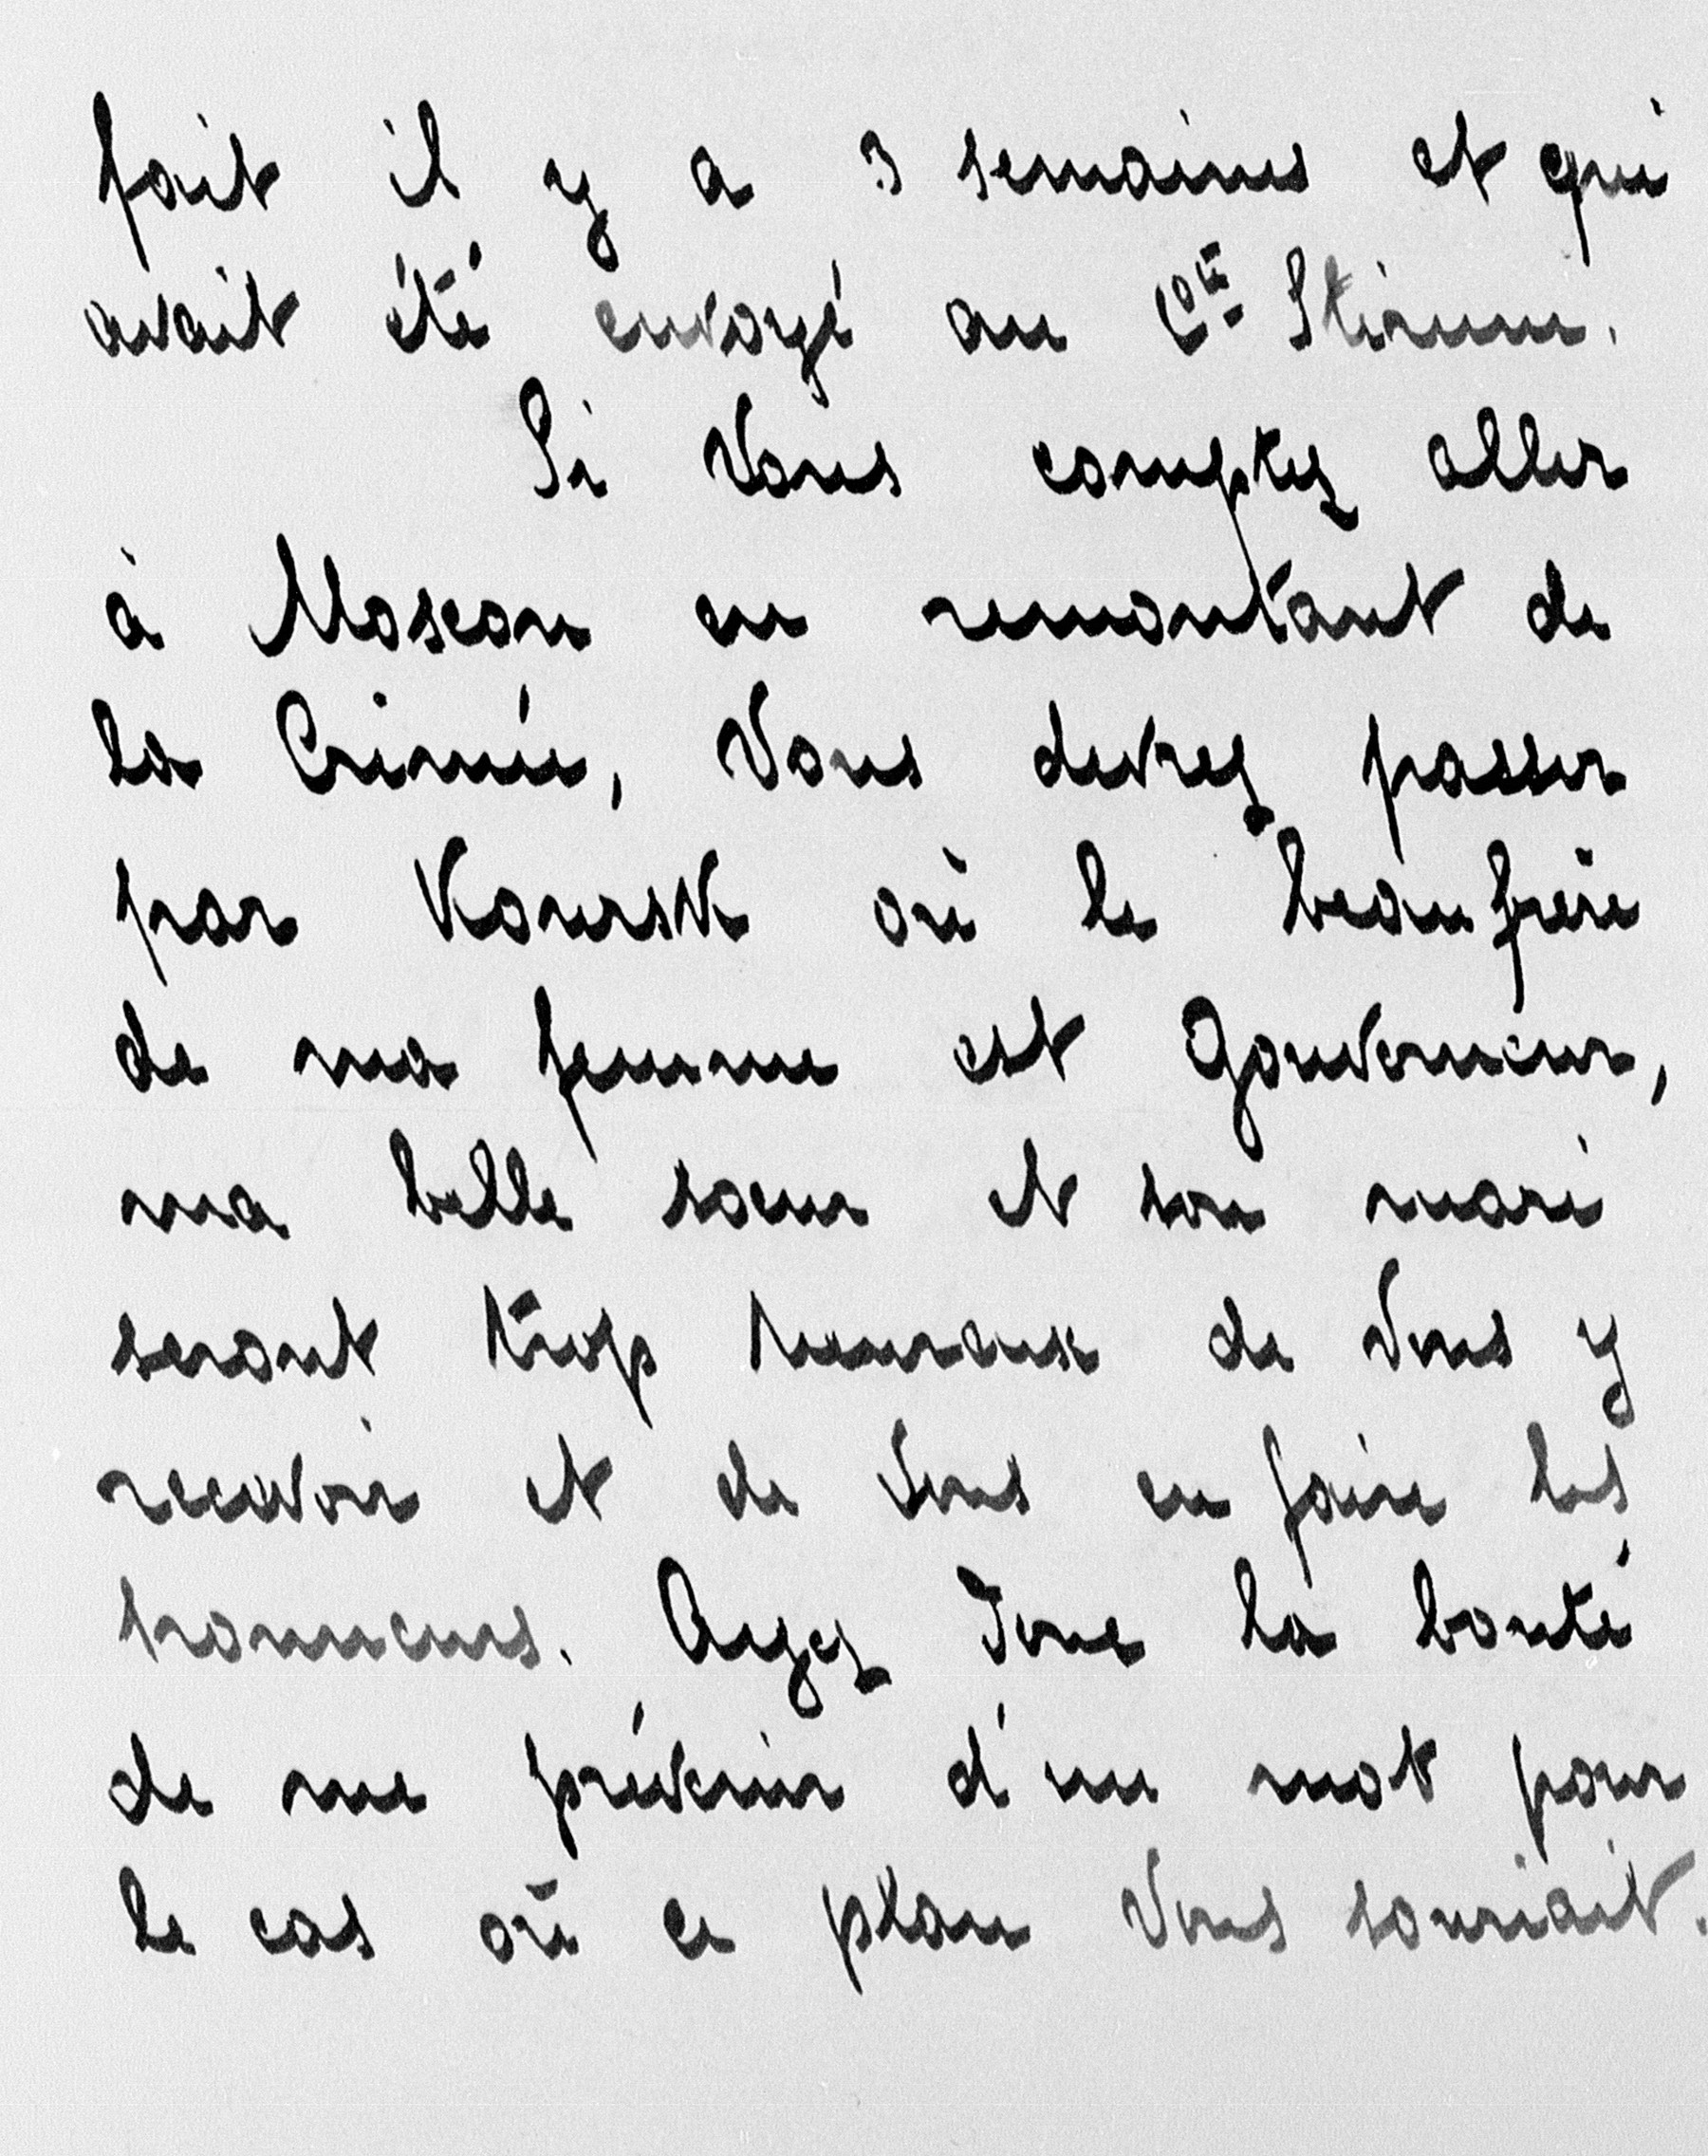 fait il y a 3 semaines et qui
avait été envoyé au Cte Stirum.
Si Vous comptez aller
à Moscou en remontant de
la Crimée, Vous devrez passer
par Koursk où le beau frère
de ma femme est Gouverneur,
ma belle soeur et son mari
seront trop heureux de Vous y
recevoir et de Vous en faire les
honneurs. Ayez donc la bonté
de me prévenir d'un mot pour
le cas où ce plan Vous souriait.